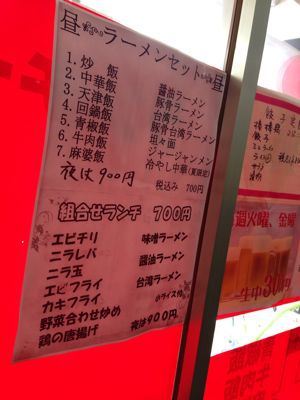 昼 ラーメンセット 昼
1. 炒飯
2. 中華飯
3. 天津飯
4. 回鍋飯
5. 青椒飯
6. 牛肉飯
7. 麻婆飯
醤油ラーメン
豚骨ラーメン
台湾ラーメン
豚骨台湾ラーメン
坦々面
ジャージャンメン
冷やし中華(夏限定)
夜は900円
税込み 700円
組合せランチ 700円
エビチリ
ニラレバ
ニラ玉
エビフライ
カキフライ
野菜合わせ炒め
鶏の唐揚げ
味噌ラーメン
醤油ラーメン
台湾ラーメン
小ライス付
夜は900円。
週火曜、金曜
生中30円